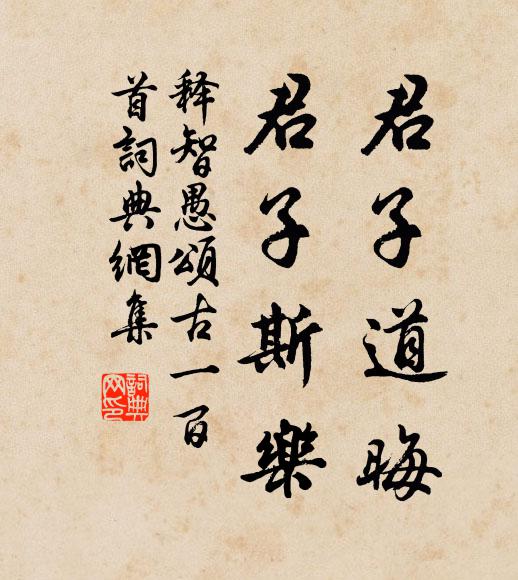 君子道晦
君子斯樂
释智愚頌古一百
首詞典網集
詞典
网印